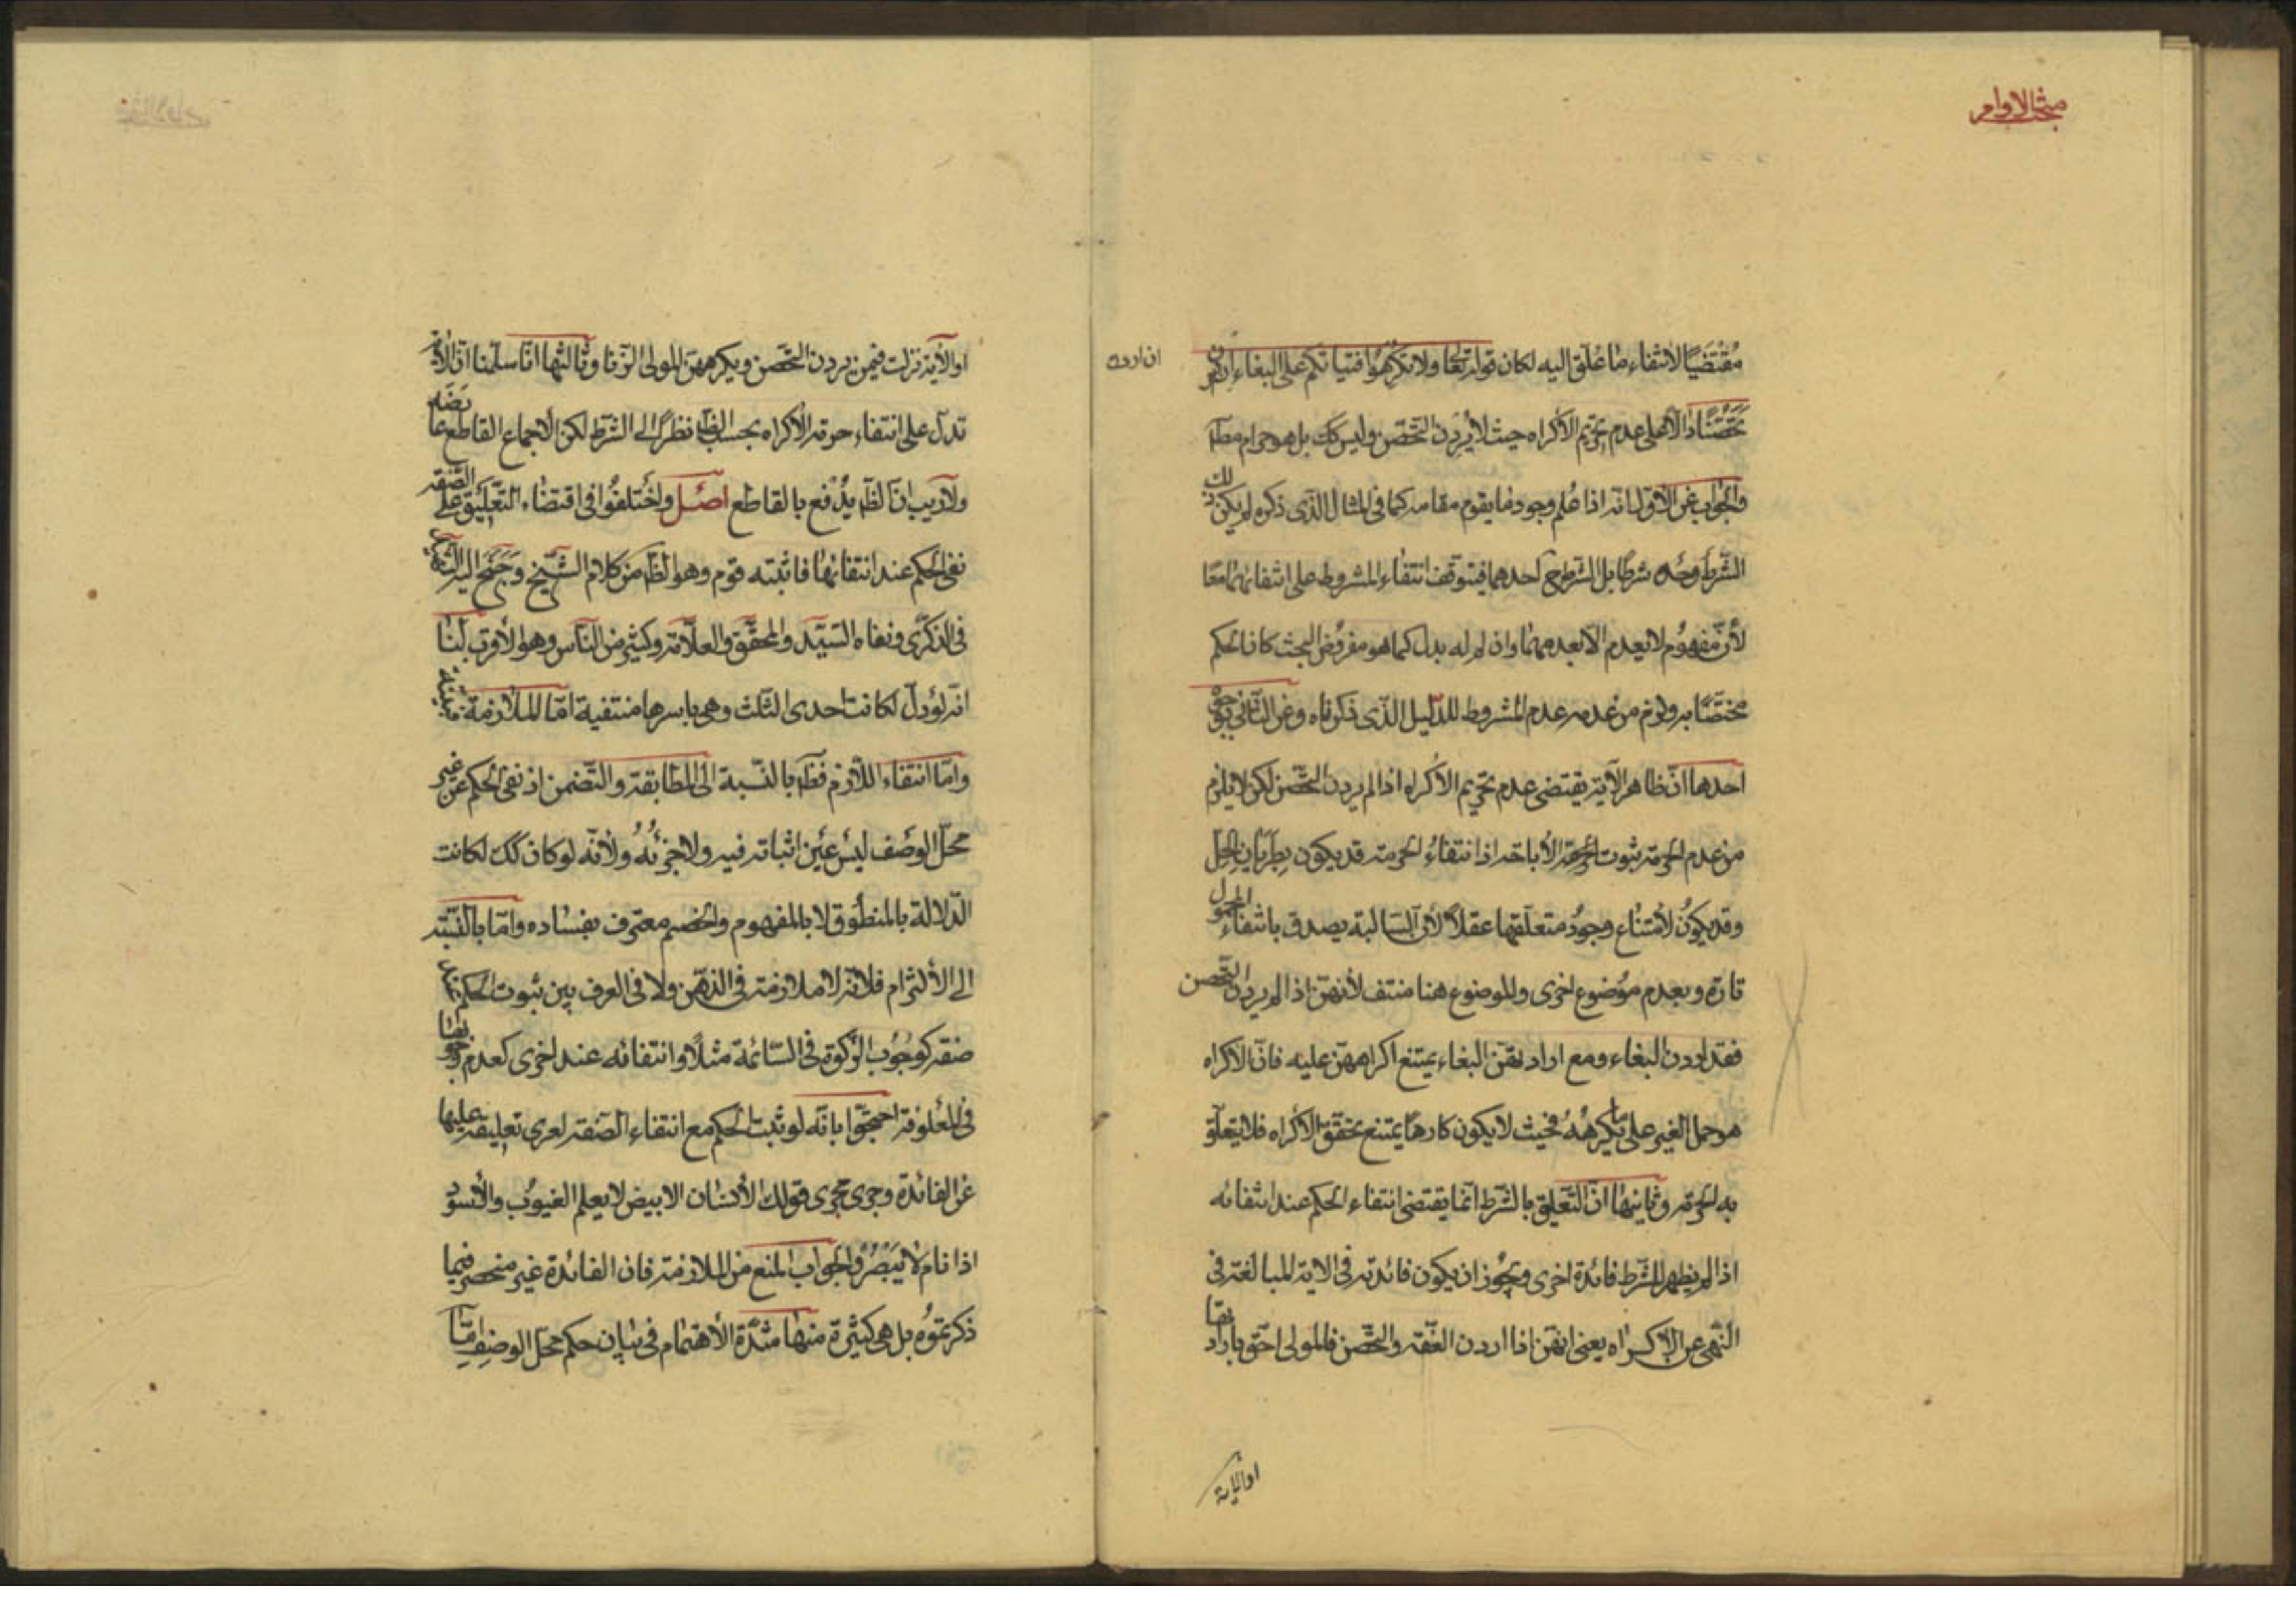 مبحث الاوامر
مُقْتَضيًا لانتفاء ما عُلّق اليه لكان قوله تعالى ولا تكرهُوا فتياتكم على البغاء ان اردن
ان اردن
تَحَصُّنًا دالّا على عدم تحريم الاكراه حيث لا يُرِدن التحصّن وليس كك بل هو حرام مطلقا
والجواب عن الاوّل انّه اذا عُلم وجود ما يقوم مقامه كما فى المثال الّذى ذكره لم يكن ذلك
الشّرط وحده شرطًا بل الشرط ح احدهما فيتوقف انتفاء المشروط على انتفائهما معًا
لأن مفهوم لا يعدم الّا بعدمهما وان لم له بدل كما هو مفروض البحث كان الحكم
مختصّا به ولزم من عدمه عدم المشروط للدّليل الّذى ذكرناه وعن الثّانى بوجوه
احدها انّ ظاهر الآية يقتضى عدم تحريم الاكراه اذا لم يردن التحصّن لكن لا يلزم
من عدم الحرمة ثبوت الاباحة اذ انتفاءُ الحرمة قد يكون بطَرَيان الحِلّ
وقد يكونُ لامتناع وجودُ متعلّقها عقلاً لأن السّالبة يصدق بانتفاء المحمول
تارة وبعدم موضوع اخرى والموضوع هنا منتف لأنهنّ اذا لم يردن التحصن
فقد اردن البغاء ومع ارادتهنّ البغاء يمتنع اكراههنّ عليه فانّ الاكراه
هو حمل الغير على ما يكرهُهُ فحيث لا يكون كارهًا يمتنع تحقّق الاكراه فلا يتعلّق
به الحرمة وثانيها انّ التّعليق بالشّرط انّما يقتضى انتفاء الحكم عند انتفائه
اذا لم يظهر للشّرط فائدة اخرى ويجُوز ان يكون فائدته فى الاية المبالغة فى
النّهى عن الاكراه يعنى انهّن اذا اردن العفّة والتحّصن فالمولى احّق بارادتها
او الآية
او الآية نزلت فيمن يردن التحّصن ويكرههنّ المولى الزّنا وثالثها انّا سلّمنا انّ الاٰية
تدلّ على انتفاء حرمة الاكراه بحسب الظّ نظرًا الى الشّرط لكن الاجماع القاطع عارضه
ولا ريب انّ الظّ يدُفع بالقاطع اصـل واختلفُوا فى اقتضاء التّعليق على الصّفة
نفى الحكم عند انتفائها فاثبته قوم وهو الظّ من كلام الشّيخ وجَنَحَ اليه الشّهيد
فى الذكرى ونفاه السّيّد والمحقّق والعلاّمة وكثير من النّاس وهو الأقرب لنا
انّه لو دلّ لكانت احدى الثّلث وهى باسرها منتفية امّا الملازمة فبيّنة
وامّا انتفاء اللّازم فظ بالنّسبة الى المطابقة والتّضمن اذ نفى الحكم عن غير
محلّ الوصف ليس عين اثباته فيه ولا جزئهُ ولأنّه لو كان كك لكانت
الدّلالة بالمنطوق لا بالمفهوم والخصم معترف بفساده وامّا بالنّسبة
الى الالتزام فلانّه لا ملازمة فى الذّهن ولا فى العرف بين ثبوت الحكم عند
صفة كوجُوب الزّكوة فى السّائمة مثلاً وانتفائه عند اخرى كعدم وجوبها
فى المعلوفة احتجّوا بانّه لو ثبت الحكم مع انتفاء الصّفة لعرى تعليقه عليها
عن الفائدة وجرى مجرى قولك الأنسان الابيض لا يعلم الغيوُب والأسود
اذا نام لا يَبْصُرُ والجواب المنع من الملازمة فان الفائدة غير منحصر فيما
ذكرتموُه بل هى كثيرة منها شدّة الأهتمام فى بيان حكم محلّ الوصف امّا